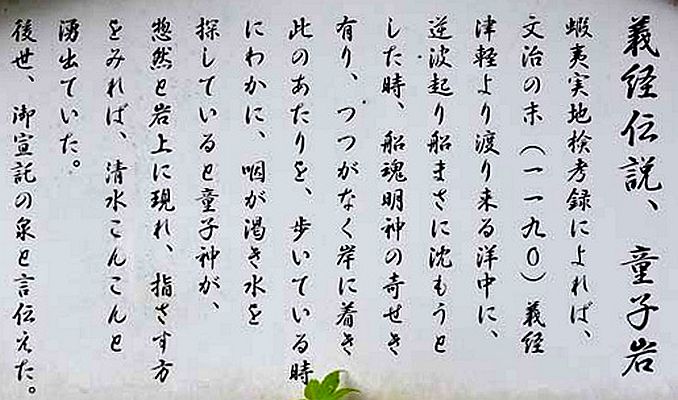 義経伝説、童子岩
蝦夷実地検考録によれば、
文治の末（一一九〇）義経
津軽より渡り来る洋中に、
逆波起り船まさに沈もうと
した時、船魂明神の奇せき
有り、つつがなく岸に着き
此のあたりを、歩いている時
にわかに、咽が渇き水を
探していると童子神が、
惣然と岩上に現れ、指さす方
をみれば、清水こんこんと
湧出ていた。
後世、御宣託の泉と言伝えた。